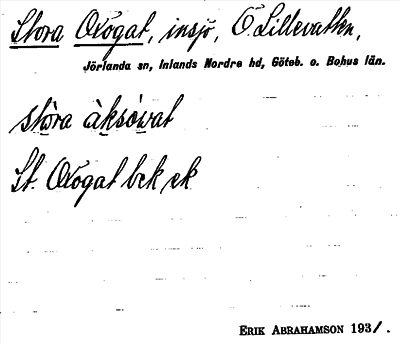 Stora Oxögat, insjö, Ö. Lillevatten,
Jörlanda sn, Inlands Nordre hd, Göteb. o. Bohus län.
stòra àksówat
St. Oxögat bck ek
ERIK ABRAHAMSON 1931.